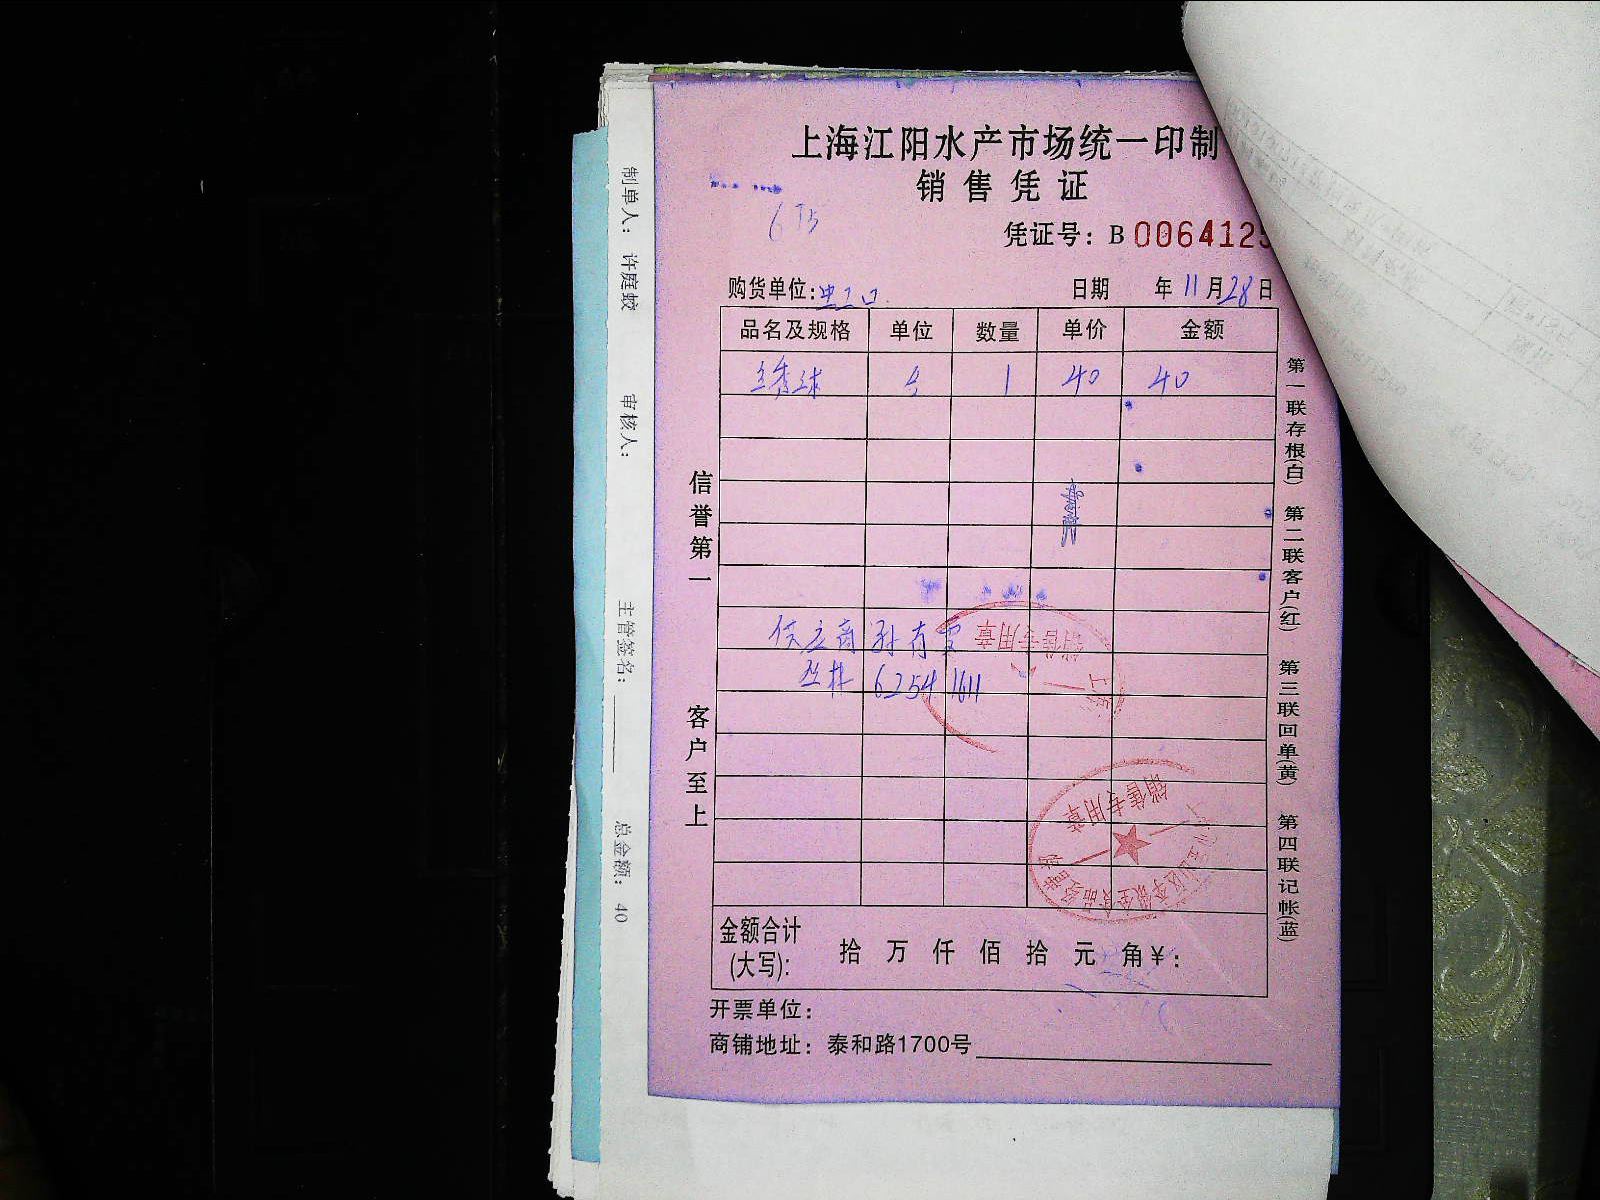 上海江阳水产市场统一印制
销售凭证
凭证号：B 0064125
购货单位: 日期 年 11 月 28 日
品名及规格 单位 数量 单价 金额
1 40 40
供应商 孙有
6254 1611
信誉第一
客户至上
第一联存根(白) 第二联客户(红) 第三联回单(黄) 第四联记帐(蓝)
销售专用章
销售专用章
金额合计
(大写): 拾 万 仟 佰 拾 元 角 ¥:
开票单位:
商铺地址: 泰和路1700号
制单人: 许庭蛟 审核人: 主管签名: 总金额: 40